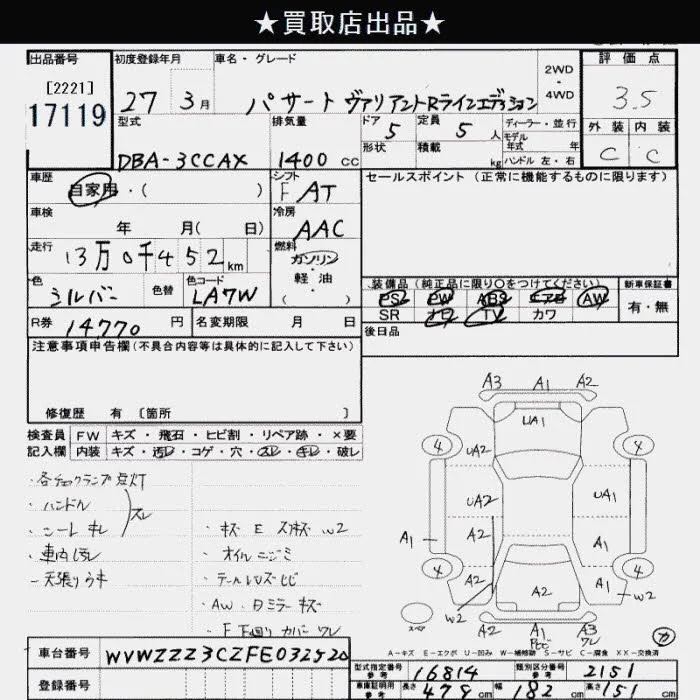 ★買取店出品★
出品番号 初度登録年月 車名・グレード 2WD・4WD 評価点
[2221]
17119 27年 3月 パサート ヴァリアントRラインエディション 3.5
型式 排気量 ドア 5 定員 5人 ディーラー・並行 外装 内装
モデル年式 年
DBA-3CCAX 1400cc 形状 積載 kg ハンドル 左・右 C C
車歴 シフト セールスポイント (正常に機能するものに限ります)
自家用・( ) F AT
車検 冷房
年 月( 日) AAC
走行 燃料
13万0千452km ガソリン・軽油
色 色替 色コード ( ) 装備品 (純正品に限り○をつけてください) 新車保証書
シルバー LA7W PS PW ABS エアB AW 有・無
SR ナビ TV カワ
R券 14770円 名変期限 月 日 後日品
注意事項申告欄(不具合内容等は具体的に記入して下さい)
修復歴 有 [箇所 ]
検査員 FW キズ・飛石・ヒビ割・リペア跡・×要
記入欄 内装 キズ・汚レ・コゲ・穴・スレ・キレ・破レ
・各チェックランプ点灯
・ハンドル
・シート キレ スレ
・車内汚レ
・天張りウキ
・キズ E スリキズ W2
・オイルニジミ
・テールレンズヒビ
・AW、Dミラーキズ
・F下回りカバーワレ
A3 A1 A2
UA1
4 4
UA2
UA2 UA1
A1 A2 A1
4 4
A2 A1 W2
W2
スペア A2 A1 A3
ワレ
A-キズ E-エクボ U-凹み W-補修跡 S-サビ C-腐食 XX-交換済
車台番号 WVWZZZ3CZFE032520
型式指定番号 参考 16814 類別区分番号 参考 2151
登録番号 車庫証明用 参考 長さ 478cm 幅 182cm 高さ 151cm